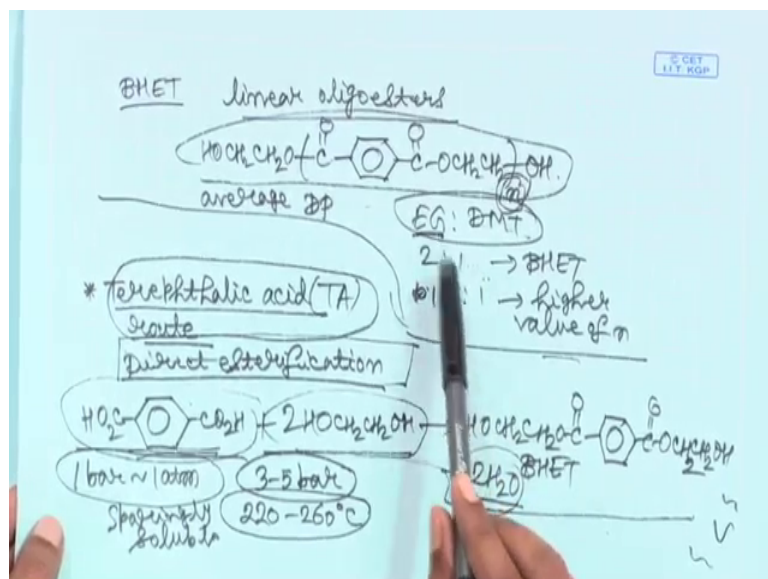 © CET
I.I.T. KGP
BHET linear oligoesters
HOCH₂CH₂O ( C O C O OCH₂CH₂ )n OH
average DP
EG : DMT
2 : 1 → BHET
1 : 1 → higher
value of n
* Terephthalic acid (TA)
route
Direct esterification
HO₂C CO₂H + 2HOCH₂CH₂OH HOCH₂CH₂O C O C O OCH₂CH₂OH
BHET
2H₂O
1 bar ~ 1 atm 3-5 bar
Sparingly
soluble
220-260°C